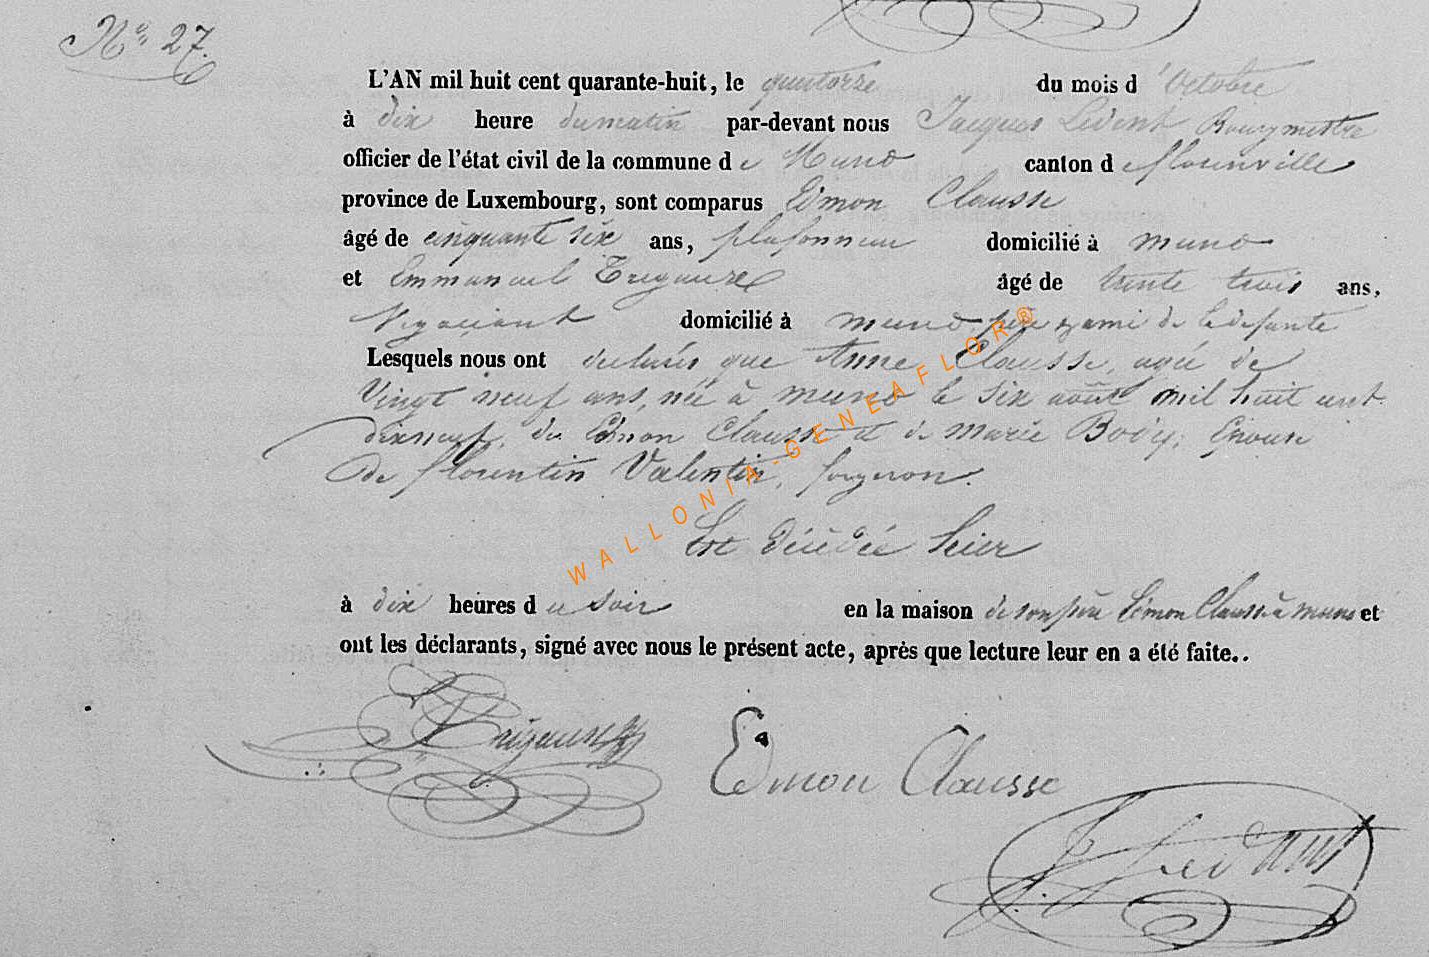 N° 27.
L'AN mil huit cent quarante-huit, le quatorze du mois d'Octobre
à dix heure du matin par-devant nous Jacques Bourgmestre
officier de l'état civil de la commune de Muno canton de florenville
province de Luxembourg, sont comparus Edmon Clausse
âgé de cinquante six ans, plafonneur domicilié à muno
et Emmanuel âgé de trente trois ans,
Négociant domicilié à muno père & ami de la défunte
Lesquels nous ont déclarés que Anne Clausse, agée de
Vingt neuf ans, née à muno le six août mil huit cent
dixneuf, de Edmon Clausse et de Marie Body, Epouse
de florentin Valentin, forgeron.
Est décédée heier
à dix heures du soir en la maison de son père Edmon Clausse à muno et
ont les déclarants, signé avec nous le présent acte, après que lecture leur en a été faite..
Edmon Clausse
WALLONIA-GENEAFLOR®